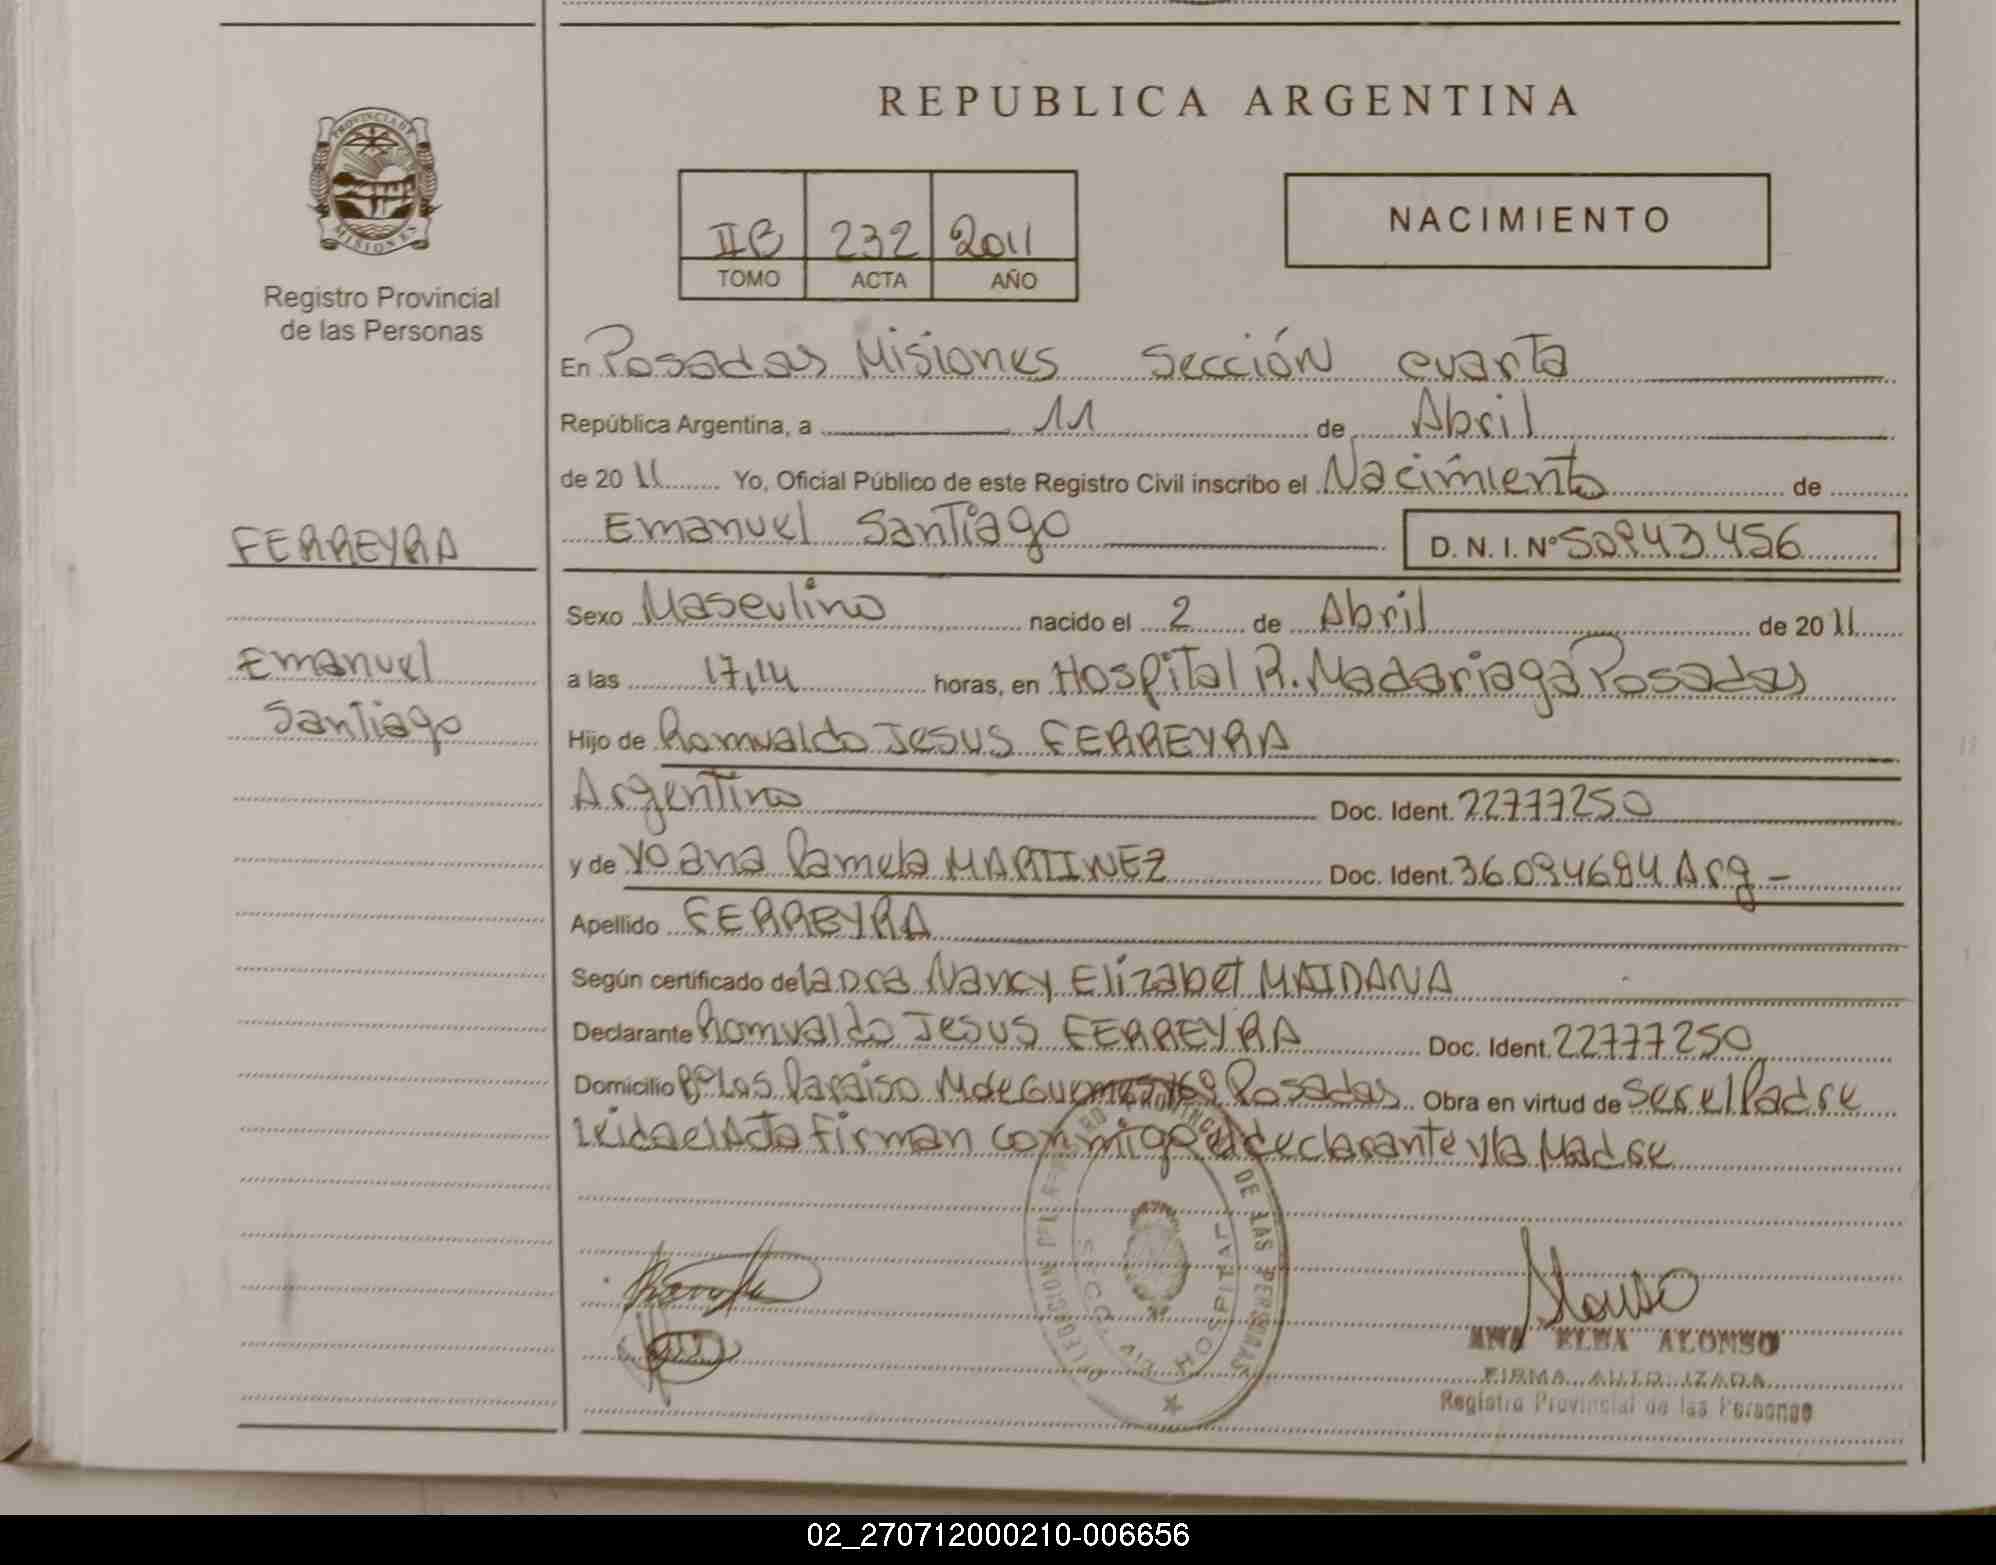 REPUBLICA ARGENTINA
PROVINCIA DE
MISIONES
Registro Provincial
de las Personas
IIB 232 2011
TOMO ACTA AÑO
NACIMIENTO
En Posadas Misiones Sección cuarta
República Argentina, a 11 de Abril
de 20 11 Yo, Oficial Público de este Registro Civil inscribo el Nacimiento de
FERREYRA
Emanuel Santiago D. N. I. Nº 50943456
Sexo Masculino nacido el 2 de Abril de 20 11
Emanuel
Santiago
a las 17,14 horas, en Hospital R. Madariaga Posadas
Hijo de Romualdo Jesus FERREYRA
Argentino Doc. Ident. 22777250
y de Yoana Pamela MARTINEZ Doc. Ident. 36094684 Arg -
Apellido FERREYRA
Según certificado de la Dra Nancy Elizabet MAIDANA
Declarante Romualdo Jesus FERREYRA Doc. Ident. 22777250
Domicilio Bº Los Paraiso M de Guemes Posadas Obra en virtud de ser el Padre
leida el Acta firman conmigo el declarante y la Madre
DE LAS PERSONAS
HOSPITAL
Alonso
ANA ELBA ALONSO
FIRMA AUTORIZADA
Registro Provincial de las Personas
02_270712000210-006656